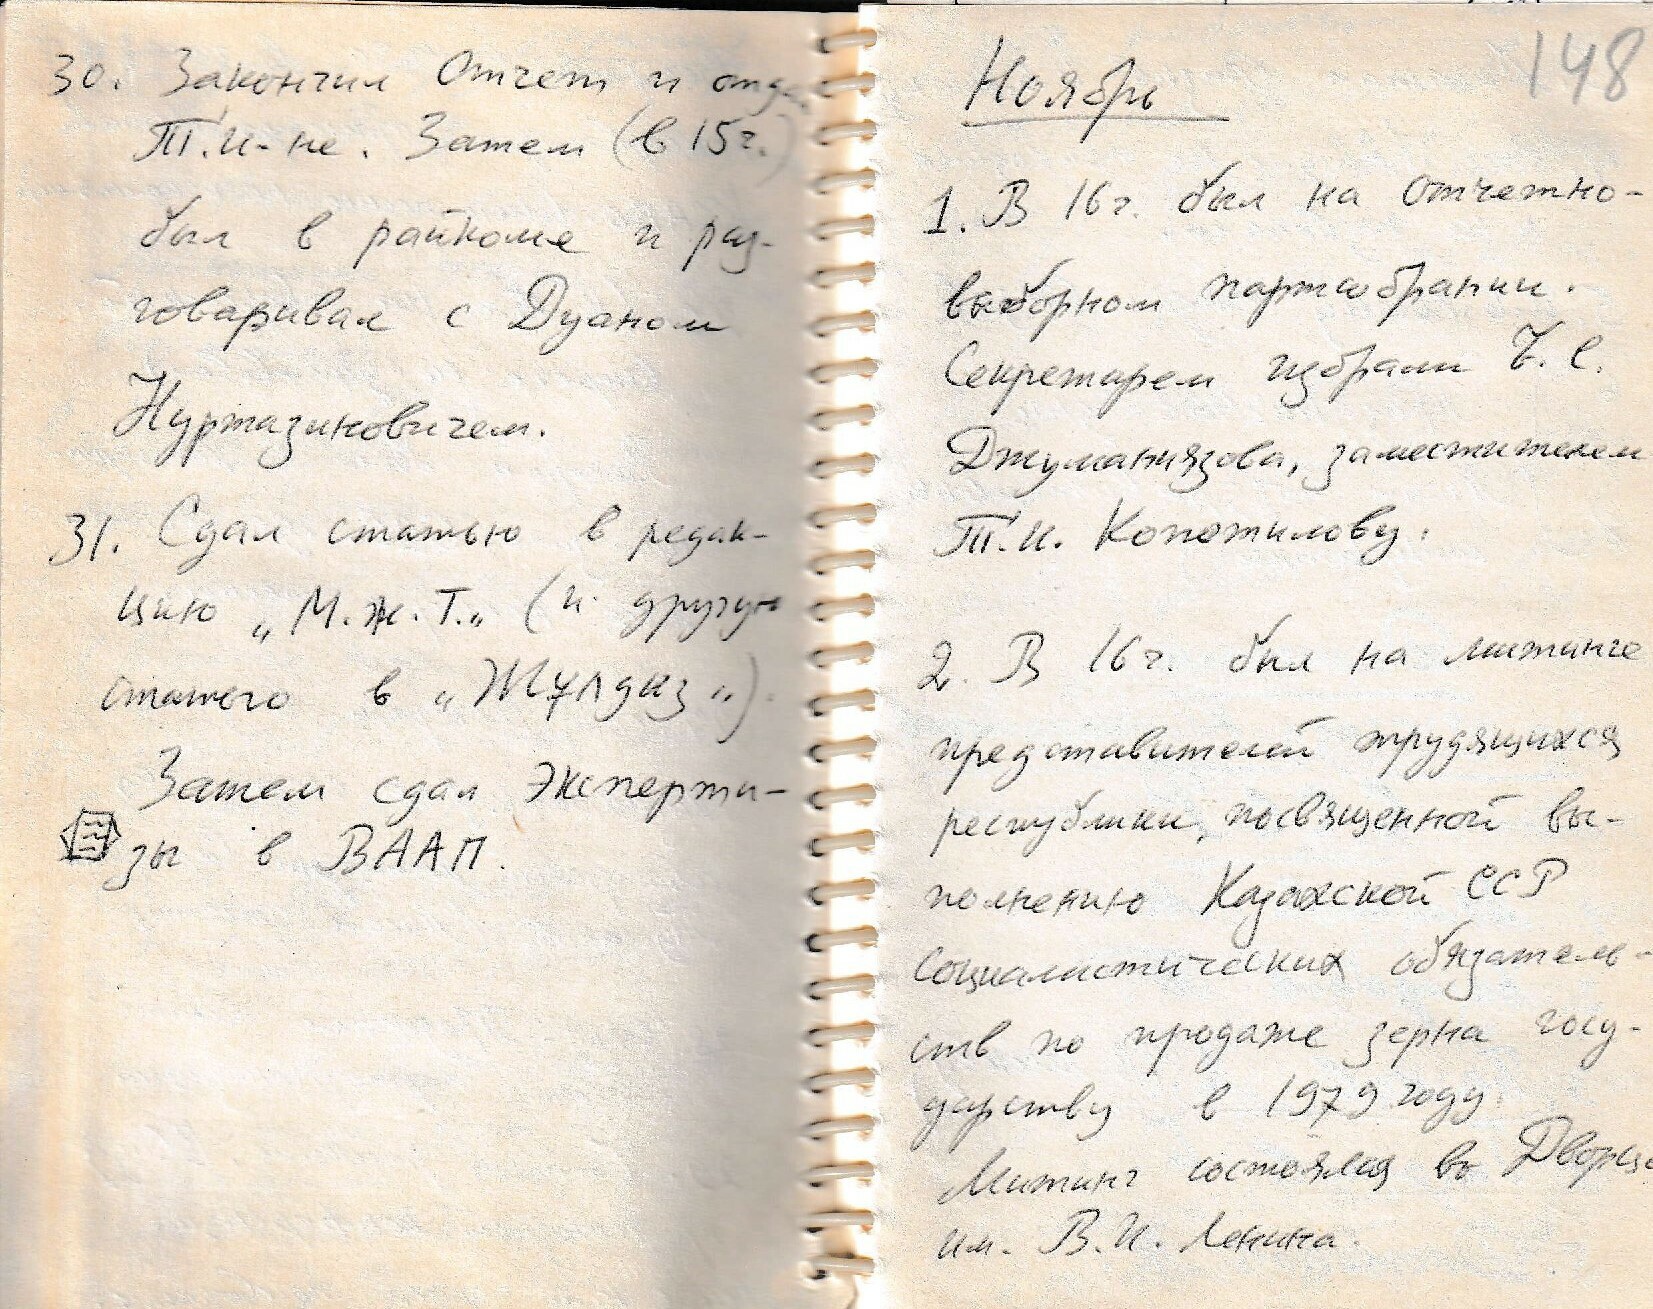 30. Закончил Отчет и отдал
Т.И-не. Затем (в 15г.)
был в райкоме и раз-
говаривал с Дуаном
Нуртазиновичем.
31. Сдал статью в редак-
цию „М.Ж.Т.„ (и другую
статью в „Жұлдыз„).
Затем сдал Эксперти-
зы в ВААП.
148
Ноябрь
1. В 16г. был на Отчетно-
выборном партсобрании.
Секретарем избрали Ч.С.
Джуманиязова, заместителем
Т.И. Копотилову.
2. В 16г. был на митинге
представителей трудящихся
республики, посвященной вы-
полнению Казахской ССР
социалистических обязатель-
ств по продаже зерна госу-
дарству в 1979 году.
Митинг состоялся во Дворце
им. В.И. Ленина.